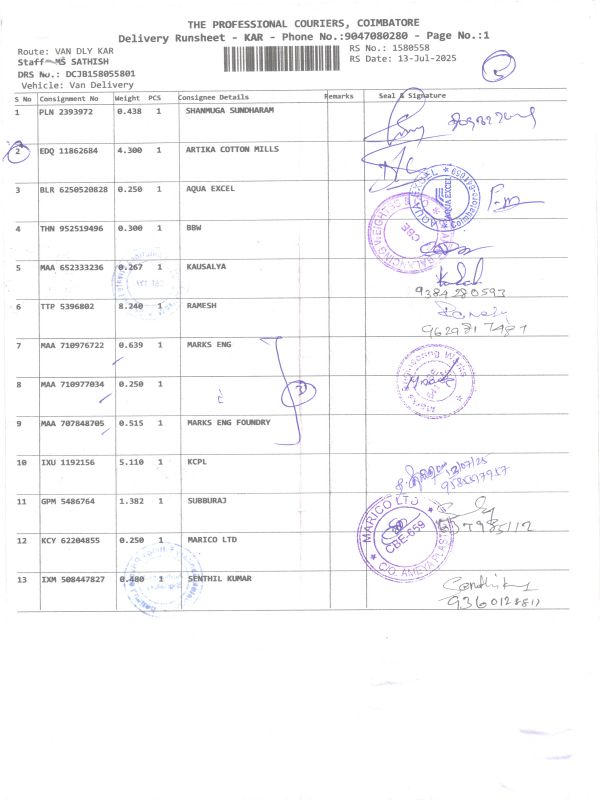 THE PROFESSIONAL COURIERS, COIMBATORE
Delivery Runsheet - KAR - Phone No.:9047080280 - Page No.:1
Route: VAN DLY KAR
RS No.: 1580558
Staff MS SATHISH
RS Date: 13-Jul-2025
DRS No.: DCJB158055801
Vehicle: Van Delivery
S No Consignment No Weight PCS Consignee Details Remarks Seal & Signature
1 PLN 2393972 0.438 1 SHANMUGA SUNDHARAM
2 EDQ 11862684 4.300 1 ARTIKA COTTON MILLS
3 BLR 6250520828 0.250 1 AQUA EXCEL
AQUA EXCEL
4 THN 952519496 0.300 1 BBW
CBE
5 MAA 652333236 0.267 1 KAUSALYA
9384280593
6 TTP 5396802 8.240 1 RAMESH
7 MAA 710976722 0.639 1 MARKS ENG
8 MAA 710977034 0.250 1
3
9 MAA 707848705 0.515 1 MARKS ENG FOUNDRY
10 IXU 1192156 5.110 1 KCPL
11 GPM 5486764 1.382 1 SUBBURAJ
MARICO LTD
CBE-659
12 KCY 62204855 0.250 1 MARICO LTD
13 IXM 508447827 0.480 1 SENTHIL KUMAR